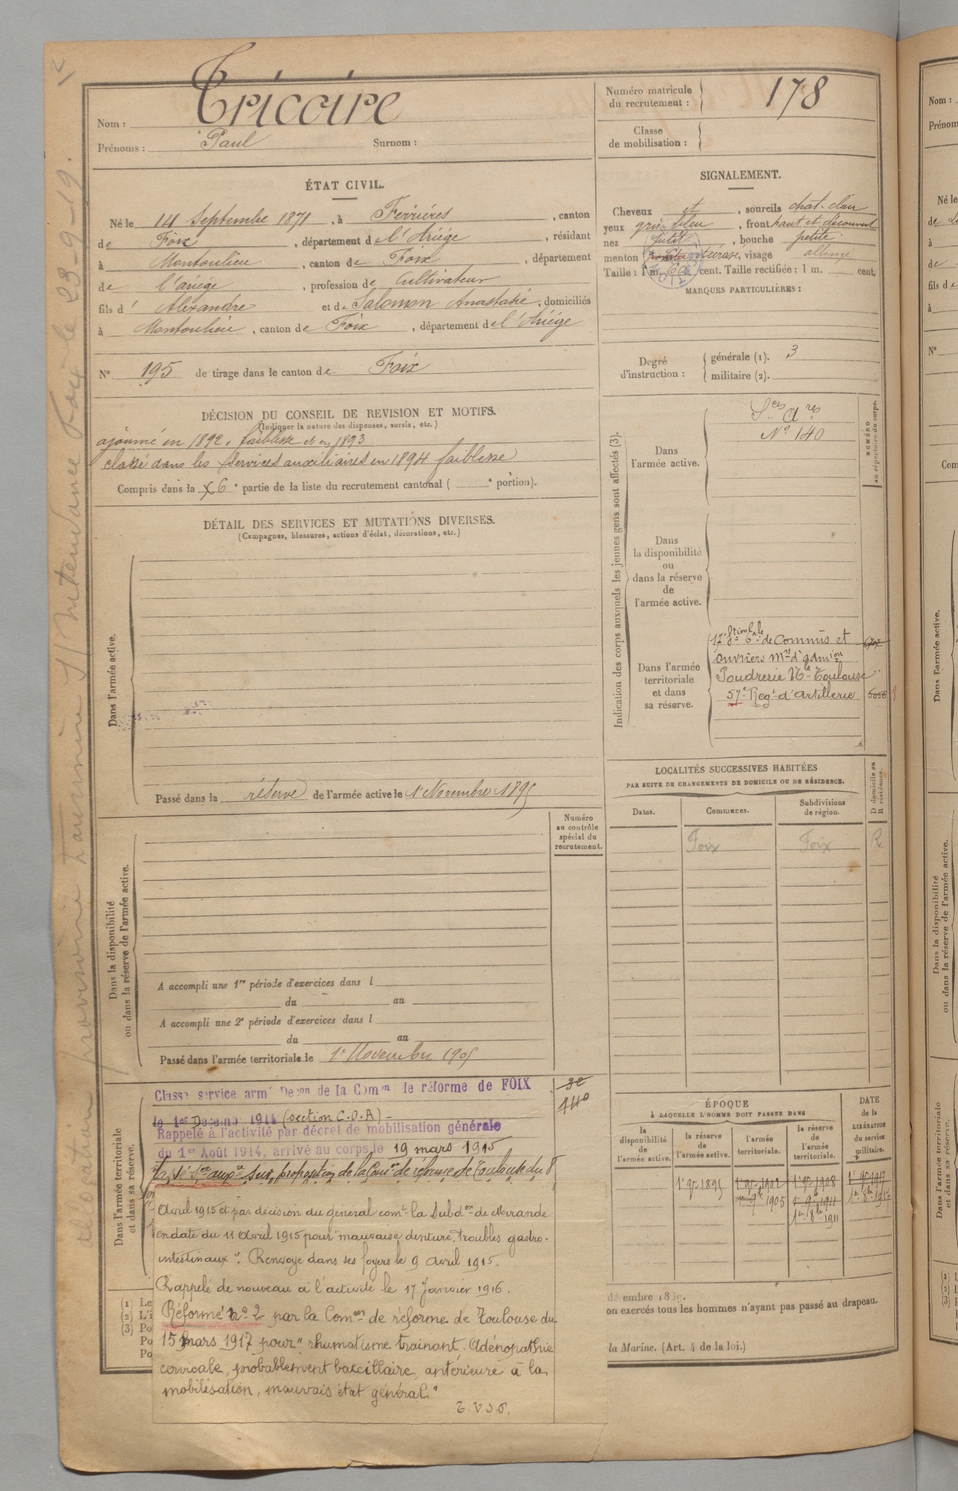 Nom : Tricoire
Prénoms : Paul Surnom :
ÉTAT CIVIL.
Né le 14 Septembre 1871, à Ferrières, canton
de Foix, département de l'Ariège, résidant
à Montoulieu, canton de Foix, département
de l'ariège, profession de Cultivateur
fils d' Alexandre et de Salomon Anastasie, domiciliés
à Montoulieu, canton de Foix, département de l'Ariège
N° 195 de tirage dans le canton de Foix
DÉCISION DU CONSEIL DE REVISION ET MOTIFS.
(Indiquer la nature des dispenses, sursis, etc.)
ajourné en 1892, faiblesse et en 1893
classé dans les Services auxiliaires en 1894 faiblesse
Compris dans la 6e partie de la liste du recrutement cantonal ( e portion).
DÉTAIL DES SERVICES ET MUTATIONS DIVERSES.
(Campagnes, blessures, actions d'éclat, décorations, etc.)
Dans l'armée active.
Passé dans la réserve de l'armée active le 1 Novembre 1895
Numéro
au contrôle
spécial du
recrutement.
Dans la disponibilité
ou dans la réserve de l'armée active.
A accompli une 1re période d'exercices dans l
du au
A accompli une 2e période d'exercices dans l
du au
Passé dans l'armée territoriale le 1er Novembre 1905
Dans l'armée territoriale
et dans sa réserve.
Classé service armé Déon de la Comon de réforme de FOIX
le 1er Décemb 1914 (section C.O.A) -
Rappelé à l'activité par décret de mobilisation générale
du 1er Août 1914, arrivé au corps le 19 mars 1915
Cl. Sce auxre sur proposition de la Comon de réforme de Toulouse du 8
Avril 1915 et par décision du général comt la Subdon de Mirande
en date du 11 Avril 1915 pour mauvaise denture, troubles gastro-
intestinaux". Renvoyé dans ses foyers le 9 Avril 1915.
Rappelé de nouveau à l'activité le 17 Janvier 1916.
Réformé n° 2 par la Comon de réforme de Toulouse du
15 mars 1917 pour "rhumatisme trainant. Adénopathie
cervicale, probablement baccillaire antérieure à la
mobilisation, mauvais état général."
140
Numéro matricule
du recrutement : 178
Classe
de mobilisation :
SIGNALEMENT.
Cheveux et, sourcils chat. clair
yeux gris bleu, front haut et découvert
nez petit, bouche petite
menton, visage allongé
Taille : 1 m. cent. Taille rectifiée : 1 m. cent.
MARQUES PARTICULIÈRES :
Degré
d'instruction :
générale (1). 3
militaire (2).
Indication des corps auxquels les jeunes gens sont affectés (3).
NUMÉRO
au répertoire du corps.
Dans
l'armée active.
Sces Ares
N° 140
Dans
la disponibilité
ou
dans la réserve
de
l'armée active.
Dans l'armée
territoriale
et dans
sa réserve.
17e Son de Commis et
ouvriers mres d'admion
Poudrerie Nle Toulouse
57e Regt d'Artillerie
LOCALITÉS SUCCESSIVES HABITÉES
PAR SUITE DE CHANGEMENTS DE DOMICILE OU DE RÉSIDENCE.
Dates. Communes. Subdivisions
de région. D domicile ou
R résidence.
Foix Foix R
ÉPOQUE
À LAQUELLE L'HOMME DOIT PASSER DANS
DATE
de la
LIBÉRATION
du service
militaire.
la
disponibilité
de
l'armée active.
la réserve
de
l'armée active.
l'armée
territoriale.
la réserve
de
l'armée
territoriale.
1er 9bre 1895
1er 9bre 1905
on exercés tous les hommes n'ayant pas passé au drapeau.
la Marine. (Art. 4 de la loi.)